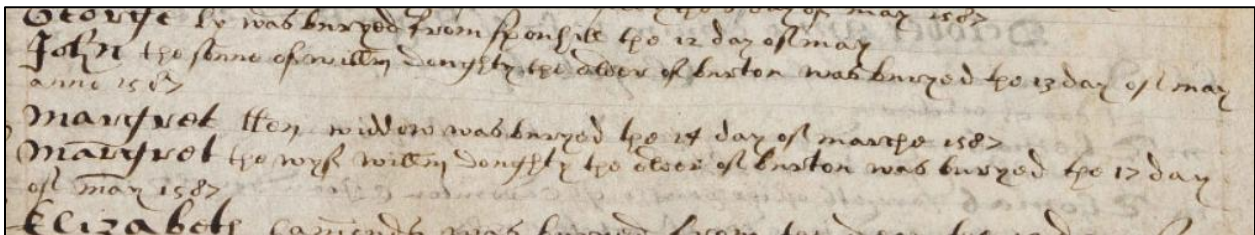 day of may 1587
George was buryed from the 12 day of may
John the sonne of willm doughty the elder of burton was buryed the 13 day of may
anno 1587
Margret widdow was buryed the 14 day of marche 1587
Margret the wyf willm doughty the elder of burton was buryed the 17 day
of may 1587
Elizabeth was buryed from the